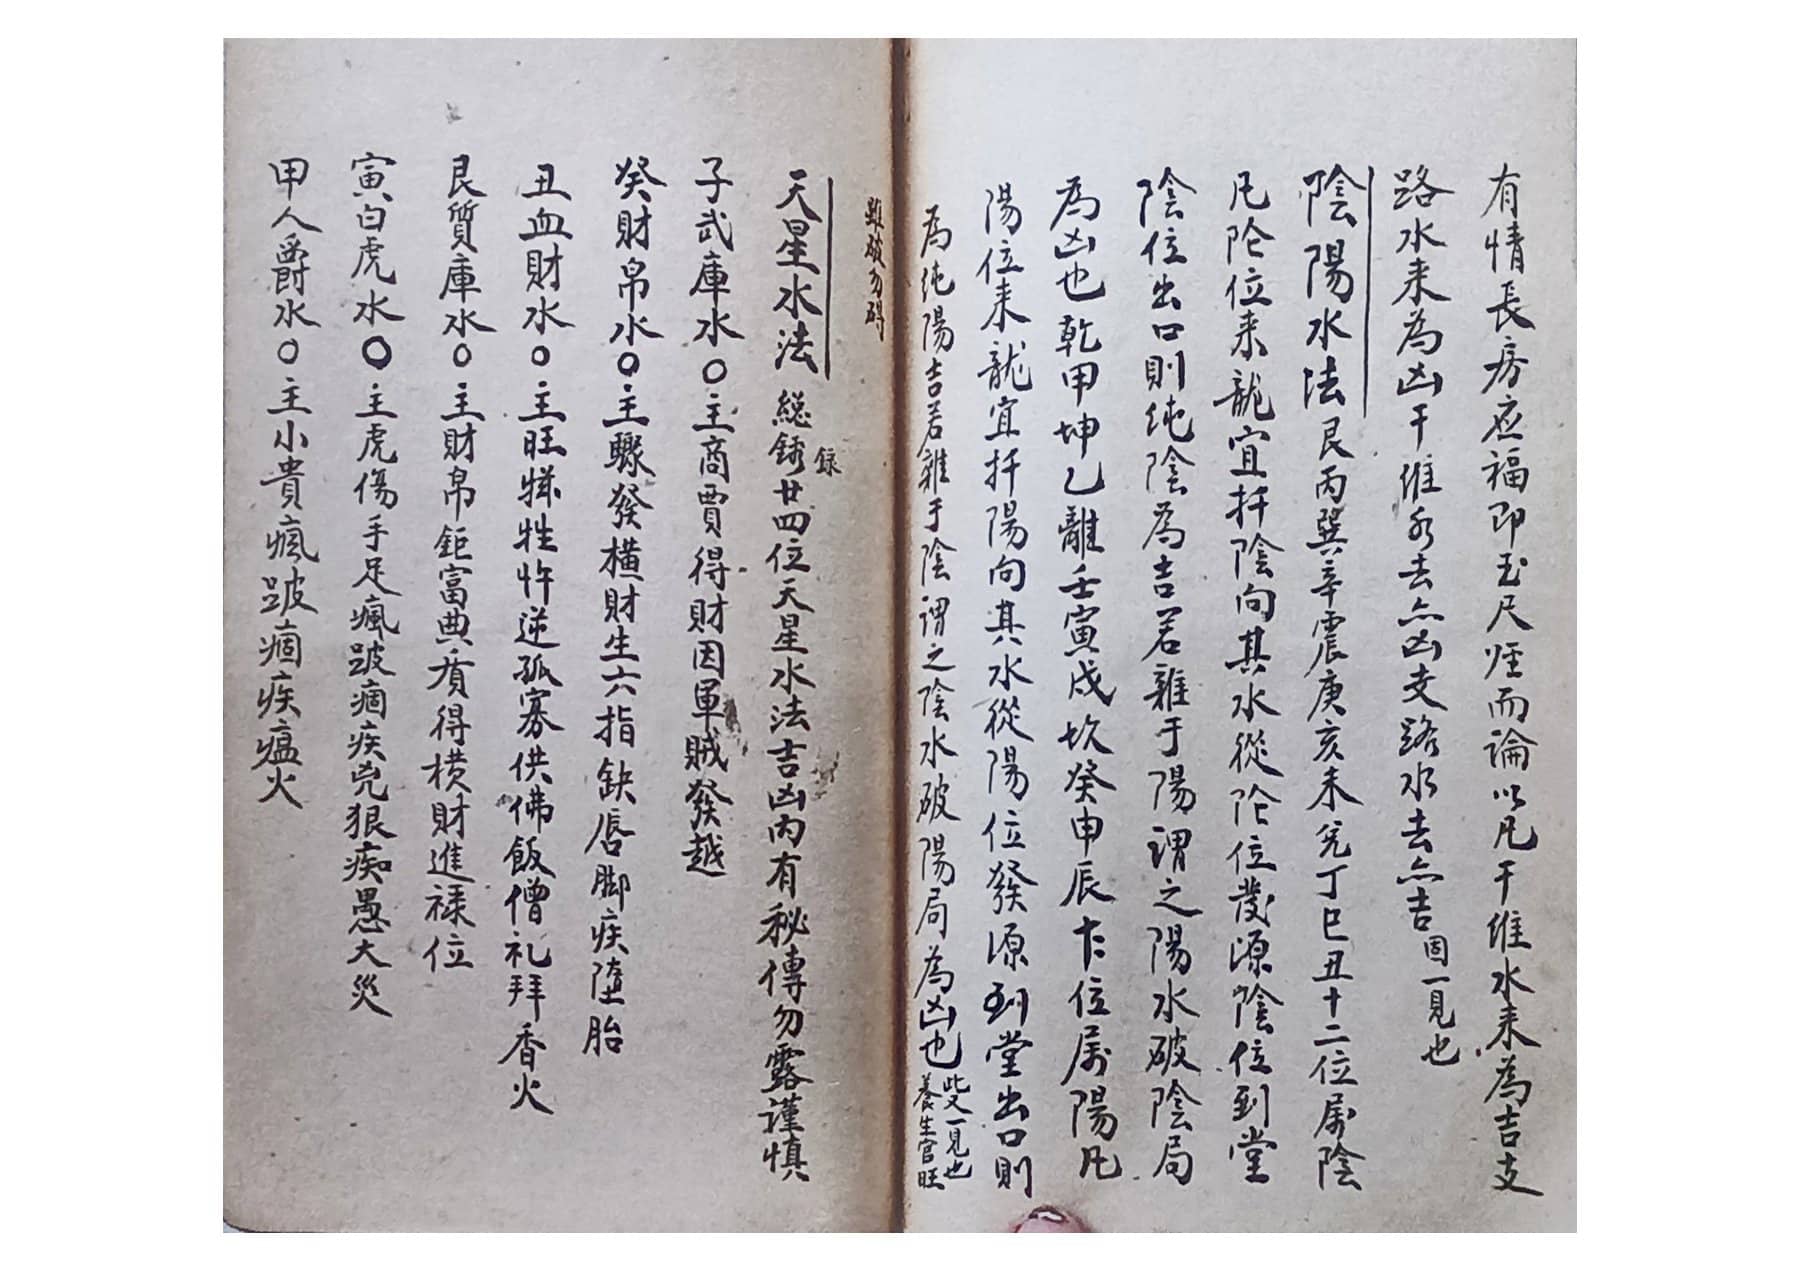 有情長房应福即玉尺経而論以凡干维水来為吉支
路水来為凶干维水去亦凶支路水去亦吉固一見也
陰陽水法艮丙巽辛震庚亥未兑丁巳丑十二位属陰
凡阴位来龍宜扦陰向其水從阴位發源陰位到堂
陰位出口則纯陰為吉若雜于陽謂之陽水破陰局
為凶也乾甲坤乙離壬寅戌坎癸申辰十二位属陽凡
陽位来龍宜扦陽向其水從陽位發源到堂出口則
為纯陽吉若雜于陰謂之陰水破陽局為凶也此又一見也養生官旺
雖破勿碍
天星水法 総錄廿四位天星水法吉凶内有秘傳勿露謹慎
録
子武庫水〇主商賈得財因軍賊發越
癸財帛水〇主驟發橫財生六指缺唇脚疾墮胎
丑血財水〇主旺牲忤逆孤寡供佛飯僧礼拜香火
艮質庫水〇主財帛鉅富典當得横財進禄位
寅白虎水〇主虎傷手足瘋跛痼疾兇狠痴愚火災
甲人爵水〇主小貴瘋跛痼疾瘟火